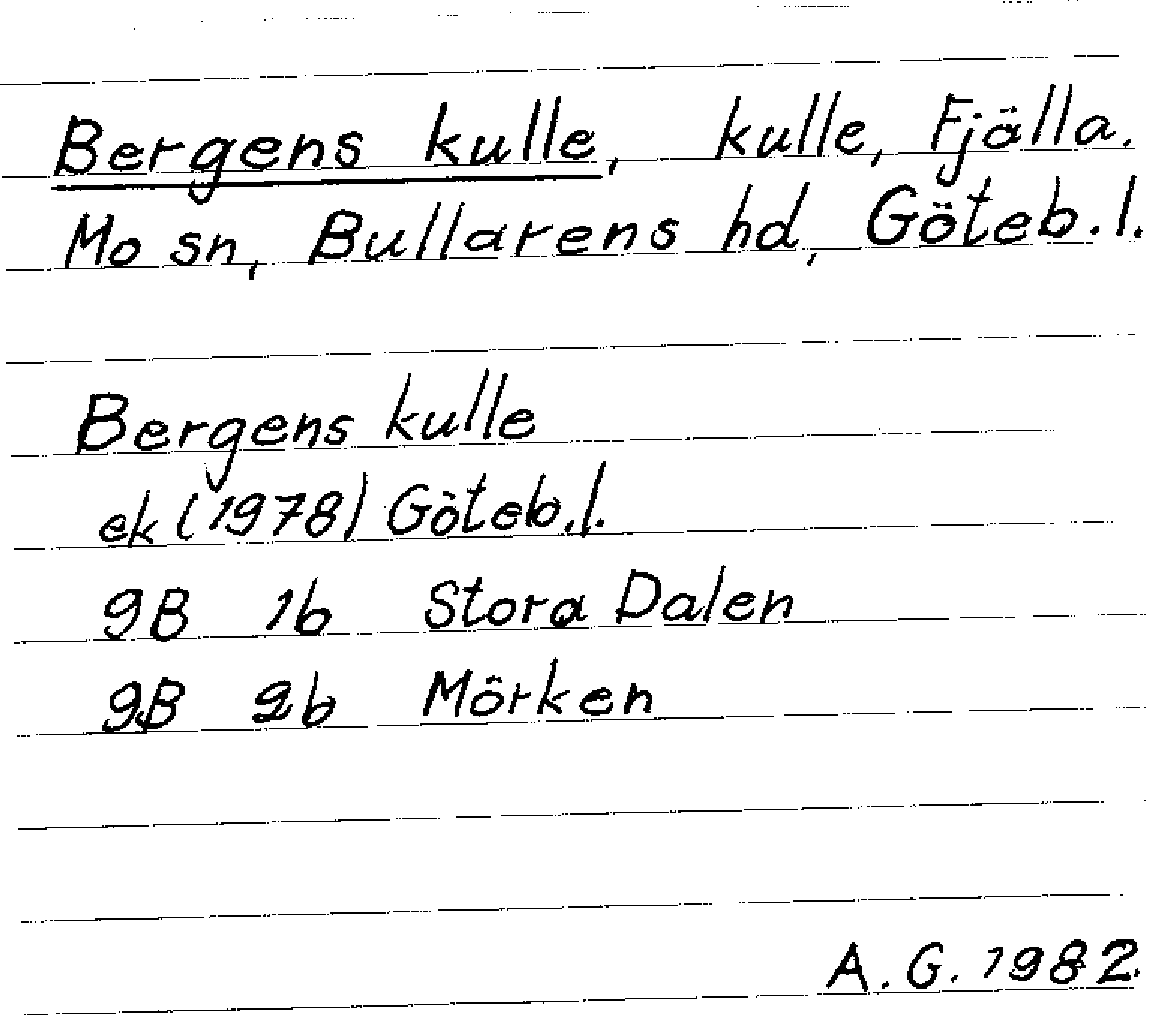 Bergens kulle, kulle, Fjälla.
Mo sn, Bullarens hd, Göteb.l.
Bergens kulle
ek (1978) Göteb.l.
9B 1b Stora Dalen
9B 2b Mörken
A.G. 1982.